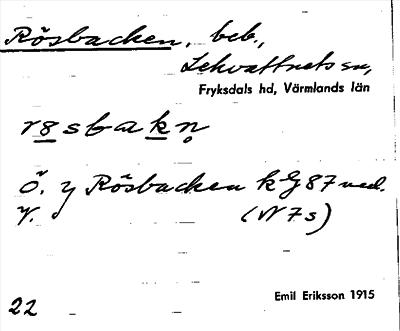 Rösbacken, beb.,
Lekvattnets sn,
Fryksdals hd, Värmlands län
r8sbakn̥
Ö. y Rösbacken kG 87 ned.
V. (N 7 s)
22
Emil Eriksson 1915